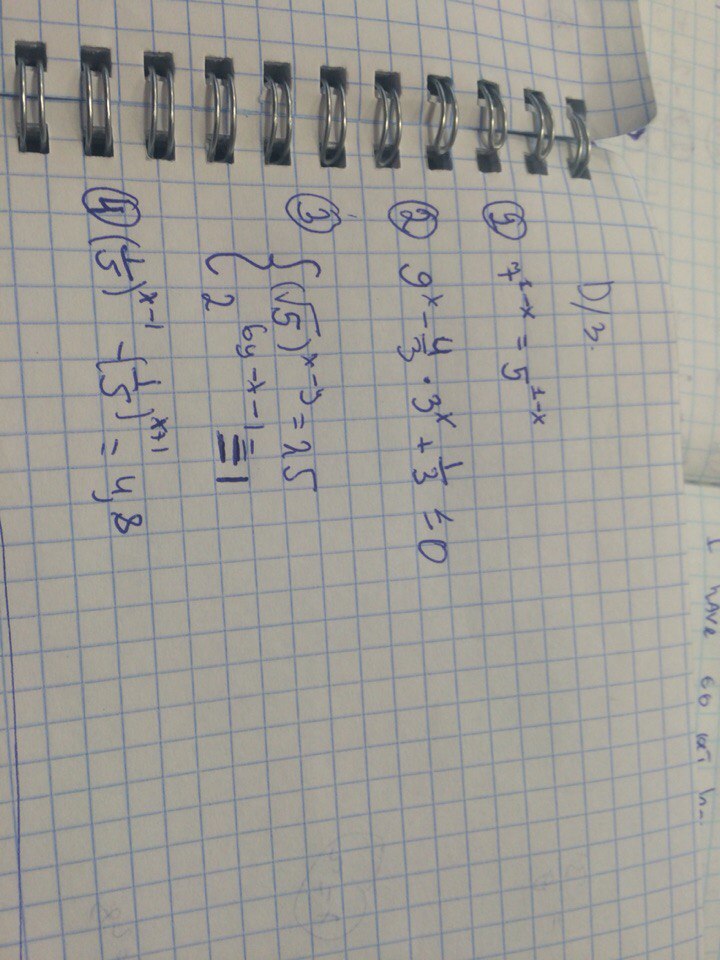 D/з.
① 7^{1-x} = 5^{1-x}
② 9^x - \frac{4}{3} \cdot 3^x + \frac{1}{3} = 0
③ { (\sqrt{5})^{x-y} = 25
2^{6y-x-1} = 1
④ (\frac{1}{5})^{x-1} - (\frac{1}{5})^{x+1} = 4,8
I have